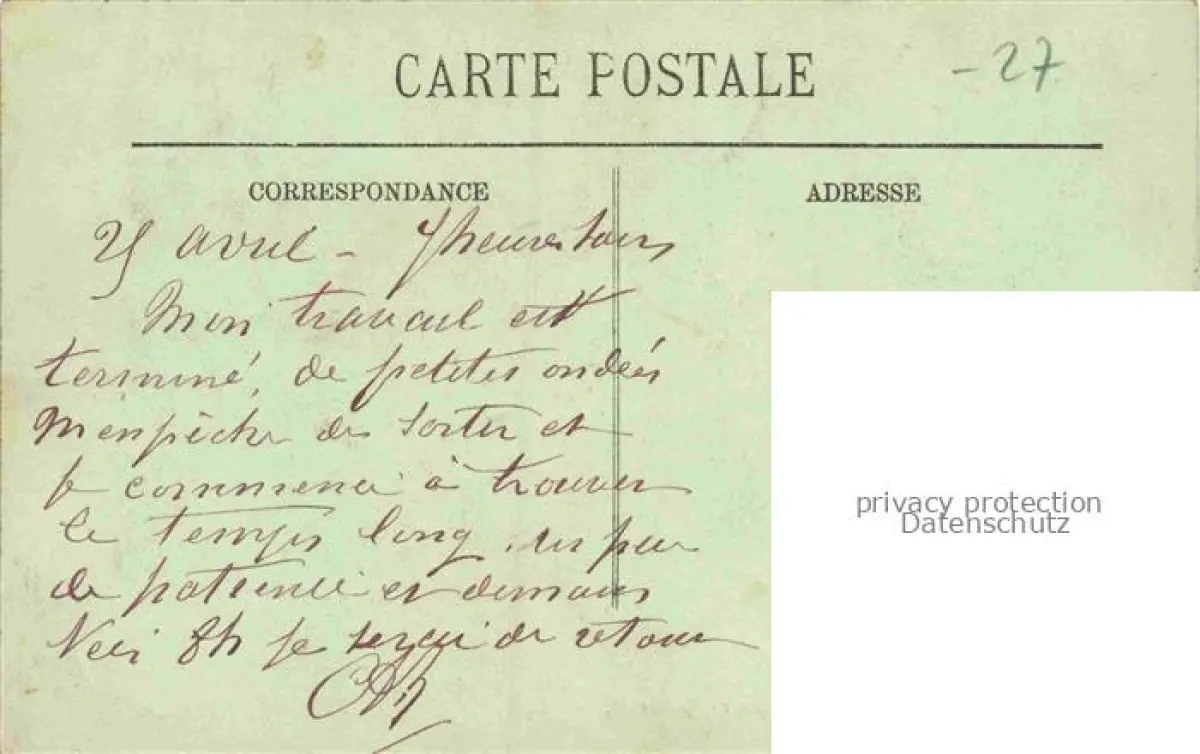 CARTE POSTALE
- 27
CORRESPONDANCE
ADRESSE
25 avril - 7 heures soir
Mon travail est
terminé, de petites ondées
m'enpêche de sortir et
je commence à trouver
le temps long, un peu
de patience et demain
Vers 8h je serai de retour
privacy protection
Datenschutz